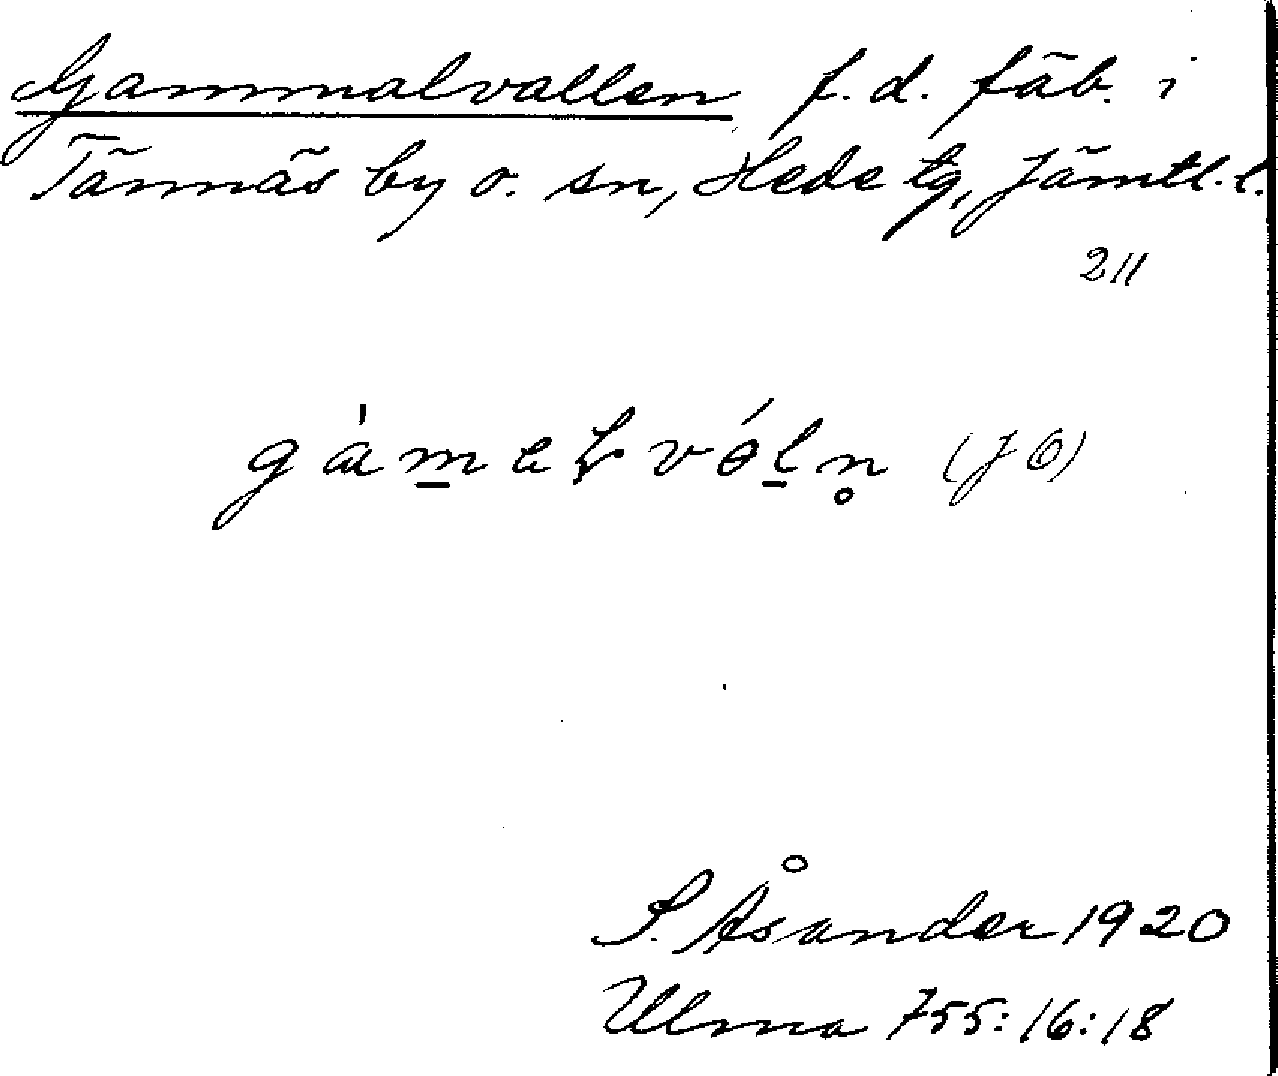 Gammalvallen f.d. fäb. i
Tännäs by o. sn, Hede tg, Jämtl. l.
211
gàmaḷvóln̥ (JÖ)
S. Åsander 1920
Ulma 755:16:18